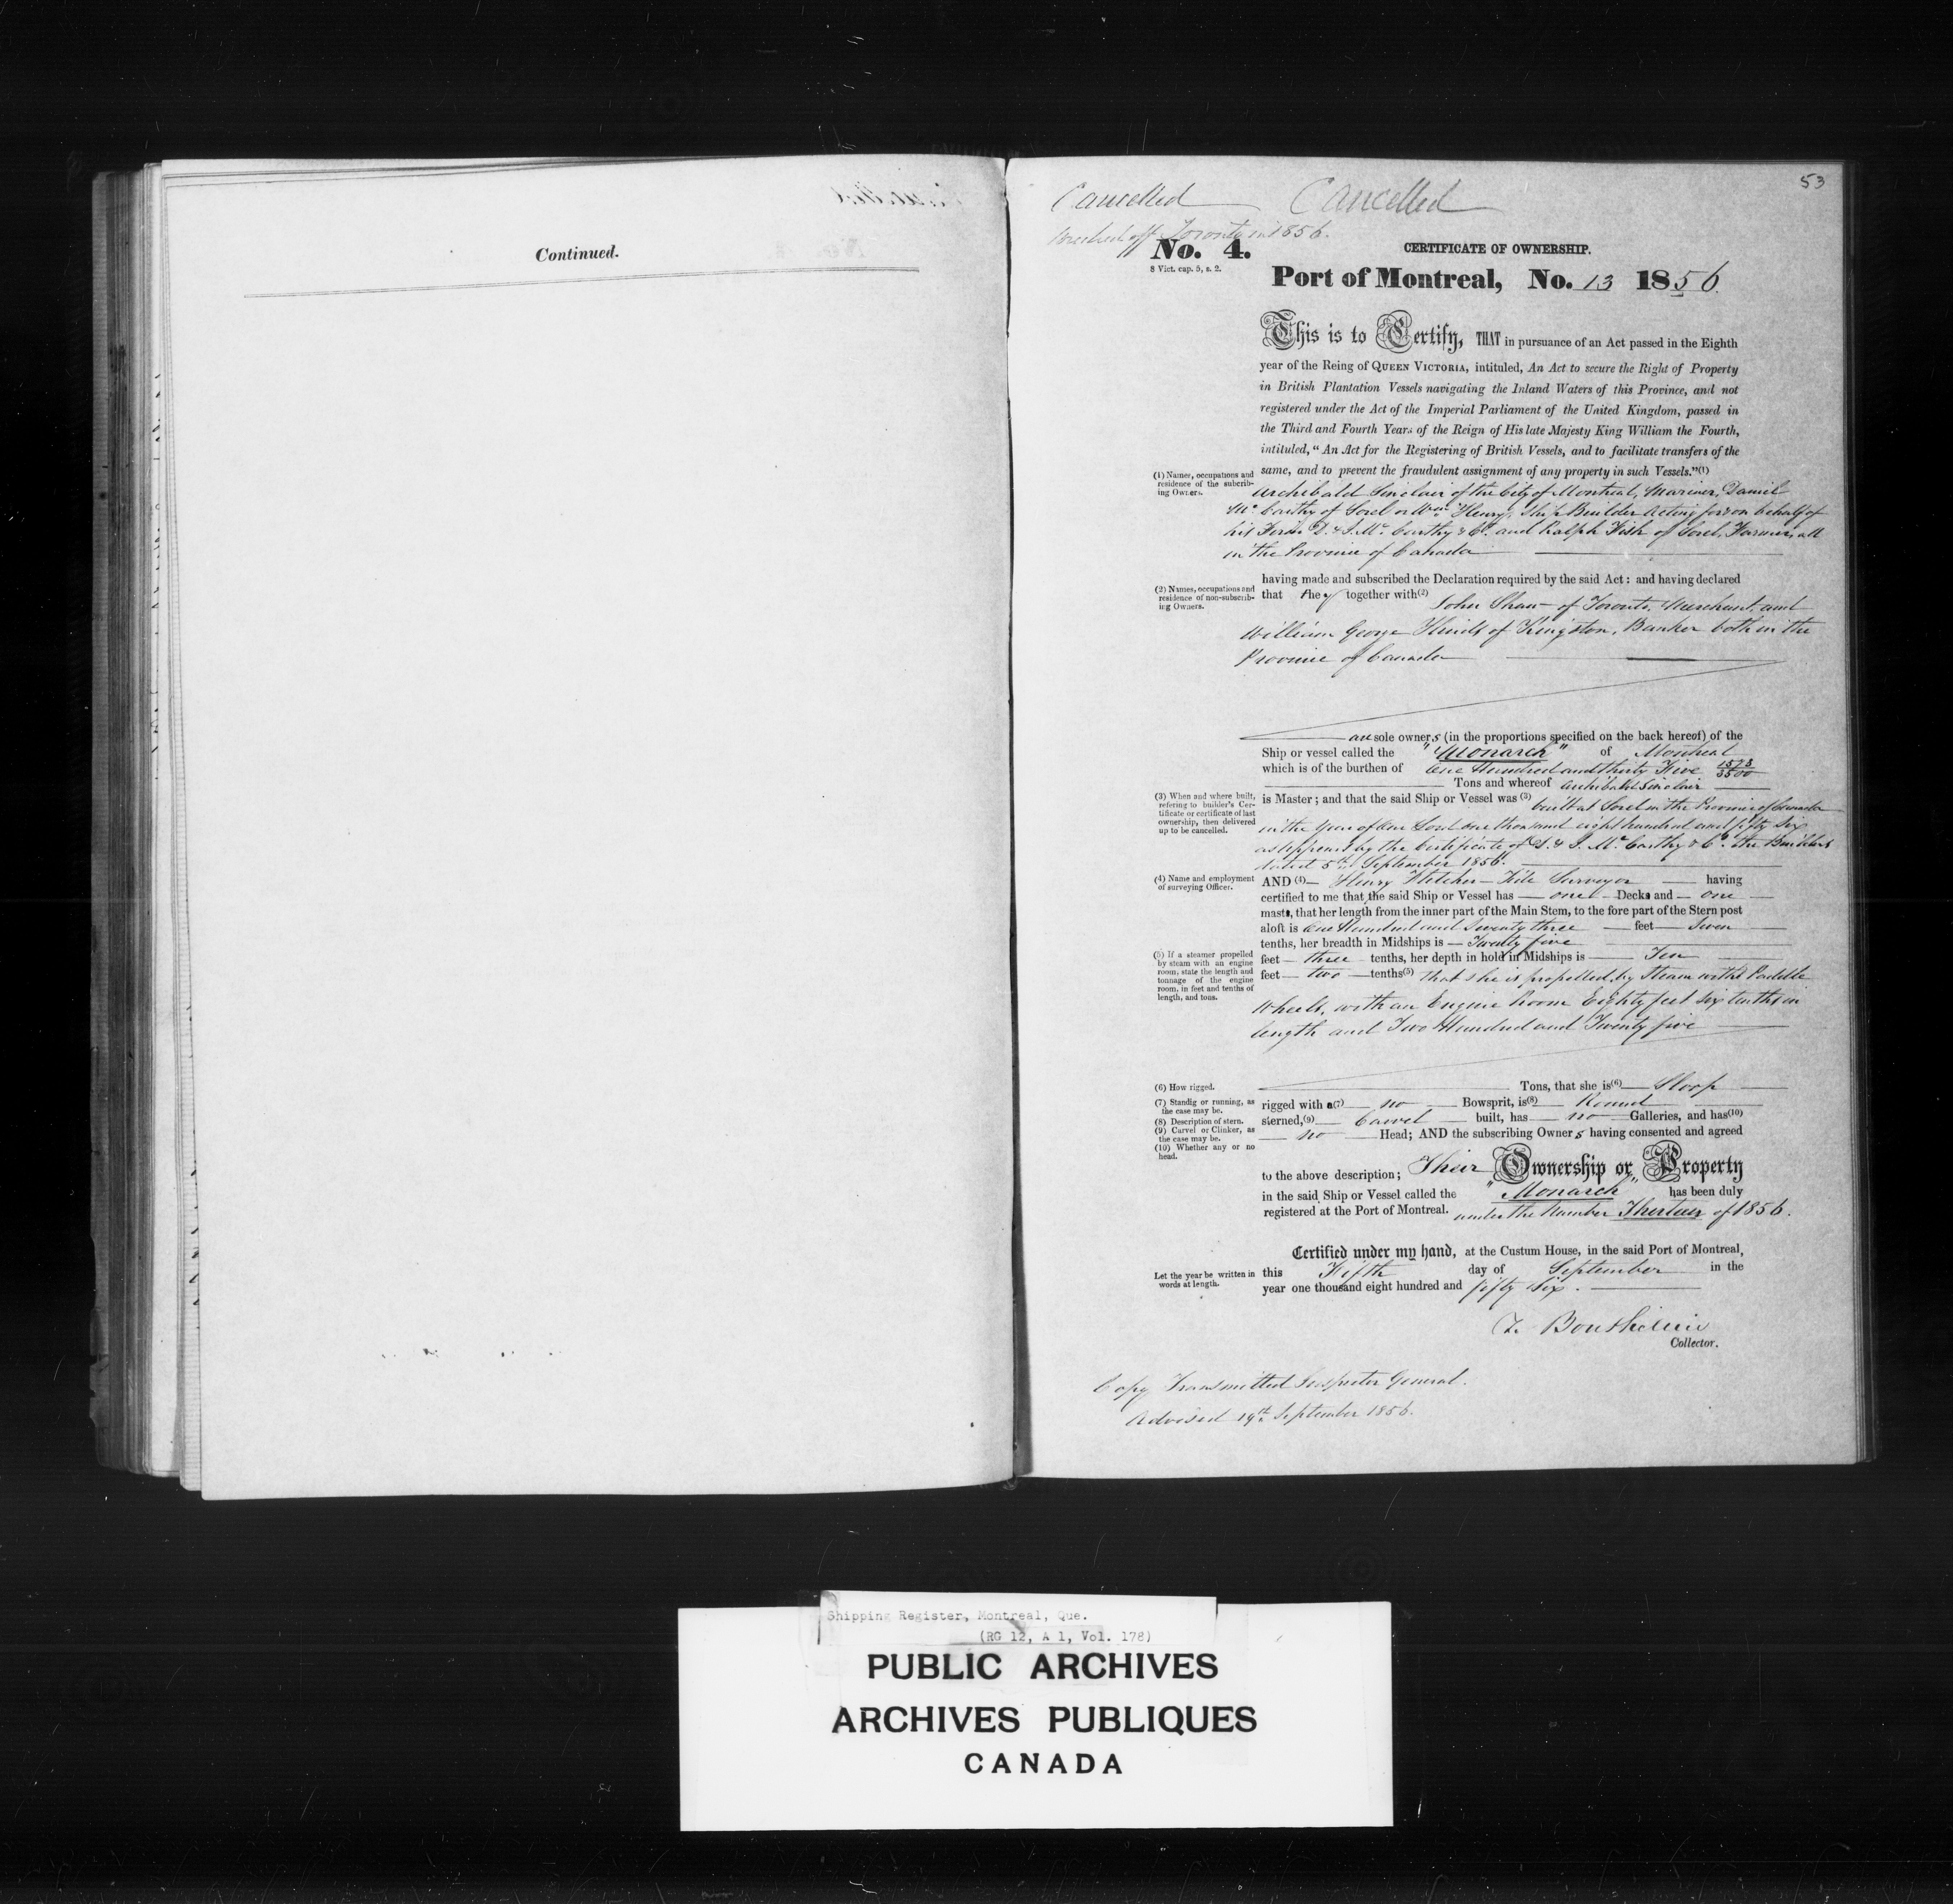 Continued.
53
Cancelled Cancelled
Wrecked off Toronto in 1856.
No. 4.
8 Vict. cap. 5, s. 2.
CERTIFICATE OF OWNERSHIP.
Port of Montreal, No. 13 1856.
This is to Certify, THAT in pursuance of an Act passed in the Eighth
year of the Reing of QUEEN VICTORIA, intituled, An Act to secure the Right of Property
in British Plantation Vessels navigating the Inland Waters of this Province, and not
registered under the Act of the Imperial Parliament of the United Kingdom, passed in
the Third and Fourth Years of the Reign of His late Majesty King William the Fourth,
intituled, "An Act for the Registering of British Vessels, and to facilitate transfers of the
same, and to prevent the fraudulent assignment of any property in such Vessels."(1)
(1) Names, occupations and
residence of the subcrib-
ing Owners.
Archibald Sinclair of the City of Montreal, Mariner, Daniel
Mc. Carthy of Sorel or Wm. Henry, Ship Builder Acting for & on behalf of
his Firm D. & J. Mc. Carthy & Co. and Ralph Fisk of Sorel, Farmer, all
in the Province of Canada
having made and subscribed the Declaration required by the said Act: and having declared
(2) Names, occupations and
residence of non-subscrib-
ing Owners.
that they together with(2) John Shaw of Toronto, Merchant, and
William George Hinds of Kingston, Banker both in the
Province of Canada
are sole owners (in the proportions specified on the back hereof) of the
Ship or vessel called the "Monarch" of Montreal
which is of the burthen of One Hundred and thirty Five 1573/3500
Tons and whereof Archibald Sinclair
(3) When and where built,
refering to builber's Cer-
tificate or certificate of last
ownership, then delivered
up to be cancelled.
is Master; and that the said Ship or Vessel was (3) built at Sorel in the Province of Canada
in the Year of Our Lord One thousand eight hundred and fifty Six
as appears by the Certificate of D. & J. Mc. Carthy & Co. the Builders
dated 5th September 1856.
(4) Name and employment
of surveying Officer.
AND (4) Henry Fletcher Tide Surveyor having
certified to me that the said Ship or Vessel has one Decks and one
masts, that her length from the inner part of the Main Stem, to the fore part of the Stern post
aloft is One Hundred and Seventy three feet Seven
tenths, her breadth in Midships is Twenty five
(5) If a steamer propelled
by steam with an engine
room, state the length and
tonnage of the engine
room, in feet and tenths of
length, and tons.
feet three tenths, her depth in hold in Midships is Ten
feet two tenths(5) that she is propelled by Steam with Paddle
Wheels, with an Engine Room Eighty feet six tenths in
length and Two Hundred and Twenty five
(6) How rigged.
Tons, that she is(6) Sloop
(7) Standig or running, as
the case may be.
(8) Description of stern.
(9) Carvel or Clinker, as
the case may be.
(10) Whether any or no
head.
rigged with a(7) no Bowsprit, is(8) Round
sterned,(9) Carvel built, has no Galleries, and has(10)
no Head; AND the subscribing Owners having consented and agreed
to the above description; Their Ownership or Property
in the said Ship or Vessel called the "Monarch" has been duly
registered at the Port of Montreal. under the Number Thirteen of 1856.
Certified under my hand, at the Custum House, in the said Port of Montreal,
Let the year be written in
words at length.
this Fifth day of September in the
year one thousand eight hundred and fifty Six.
Collector.
Copy Transmitted Inspector General.
Advised 19th September 1856.
Shipping Register, Montreal, Que.
(RG 12, A 1, Vol. 178)
PUBLIC ARCHIVES
ARCHIVES PUBLIQUES
CANADA